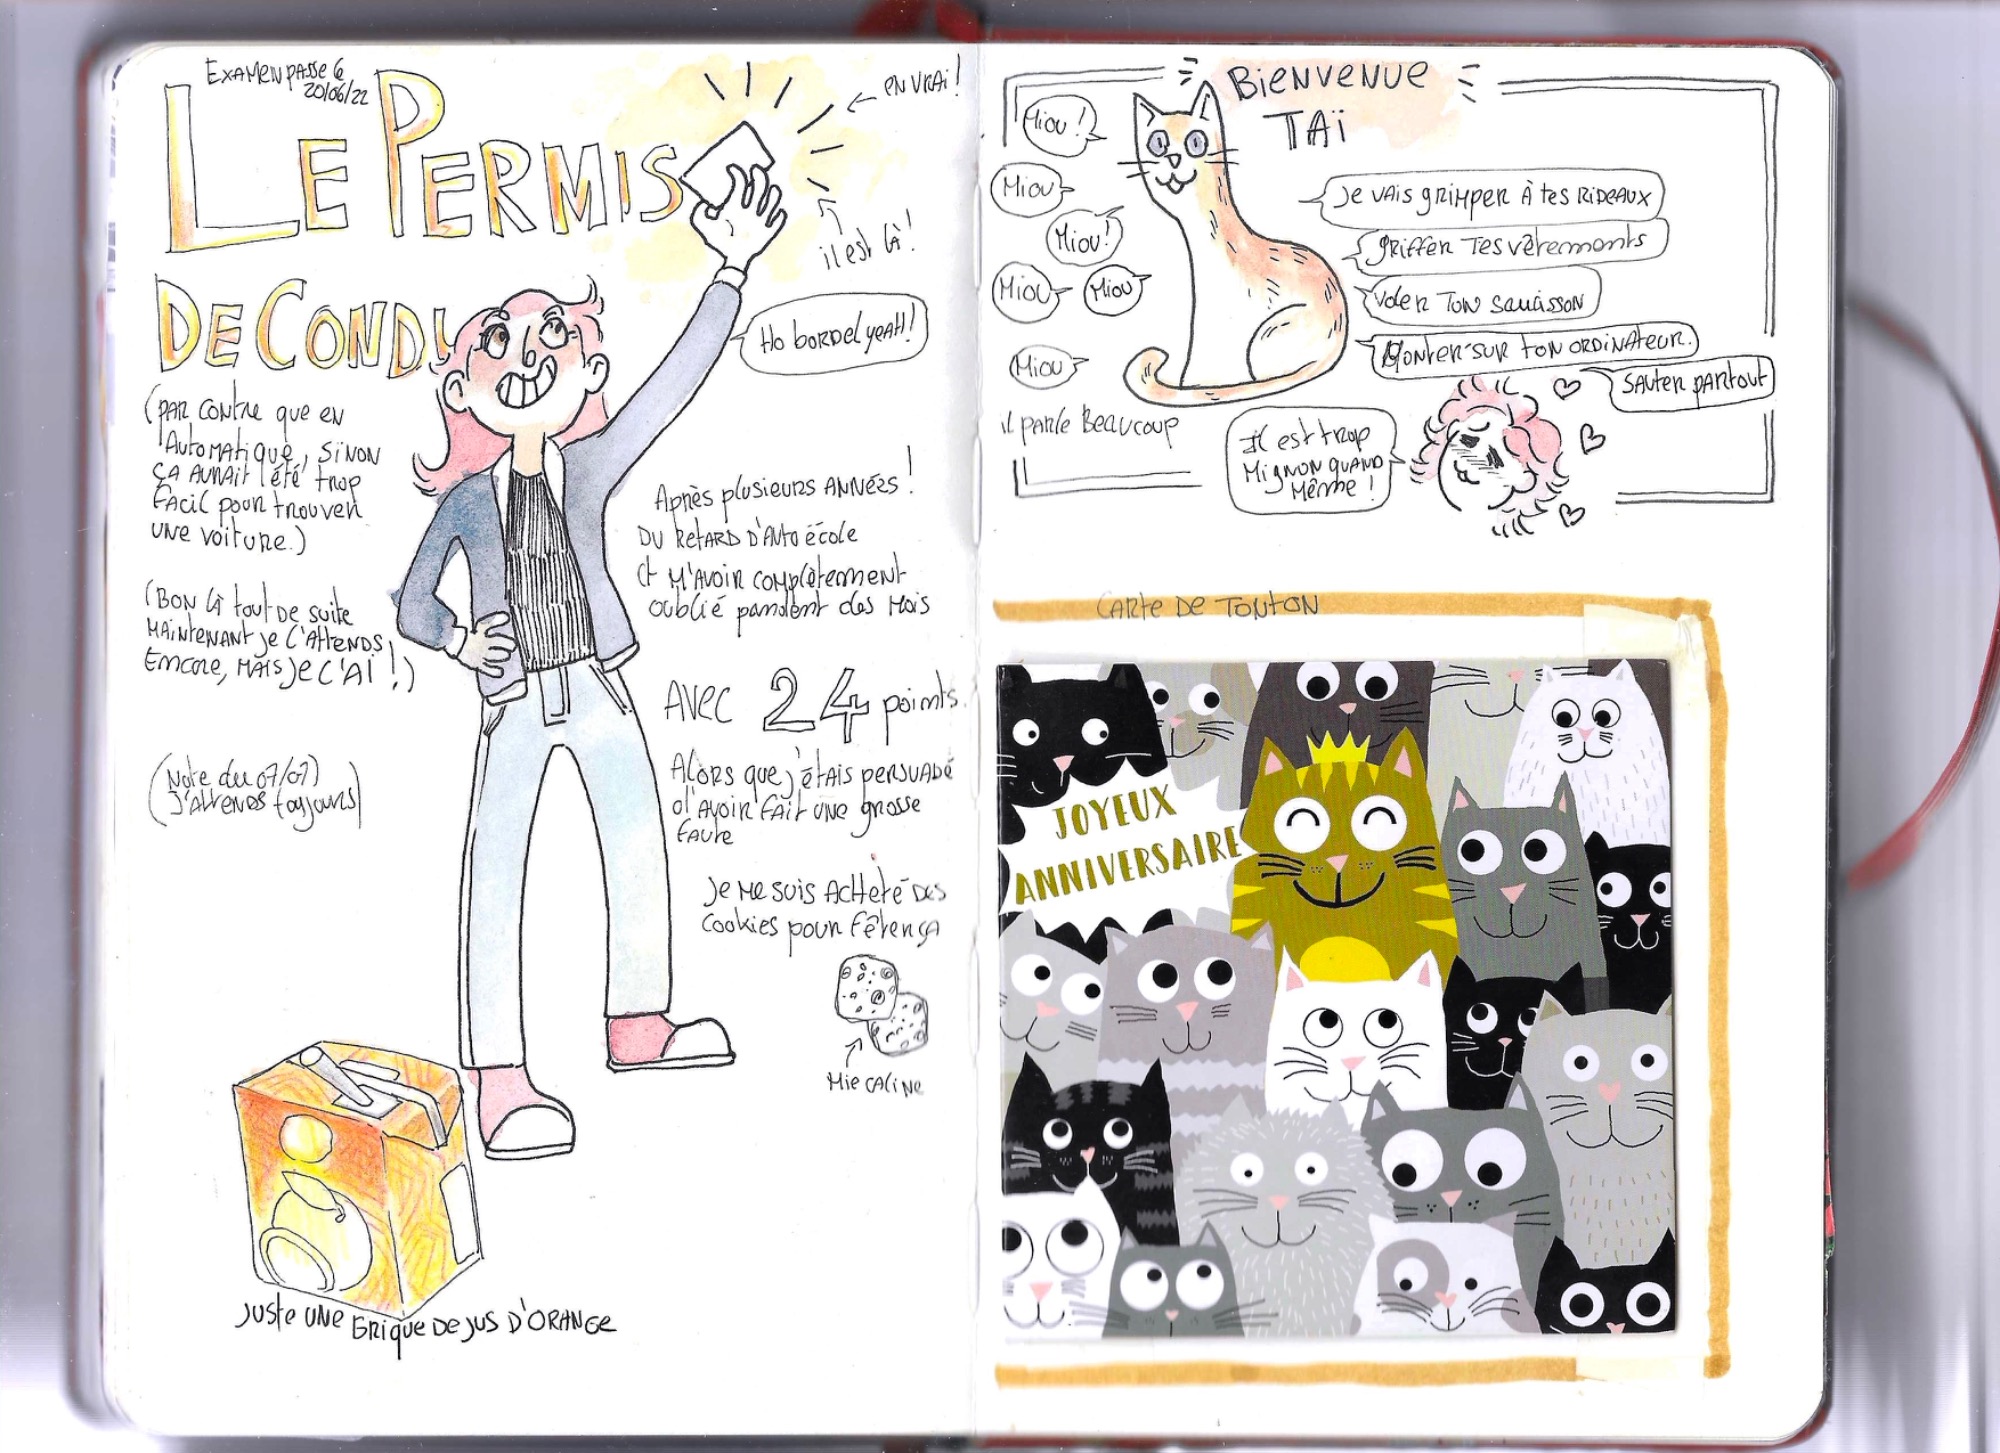 Examen passé le
20/06/22
LE PERMIS
DE CONDU
en vrai !
il est là !
Ho bordel yeah !
(par contre que en
automatique, sinon
ça aurait été trop
facil pour trouver
une voiture.)
(Bon là tout de suite
maintenant je l'attends
encore, mais je l'ai !)
(Note du 07/07)
J'attends toujours)
Après plusieurs années !
Du retard d'auto école
et m'avoir complètement
oublié pandent des mois
Avec 24 points.
Alors que j'étais persuadé
d'avoir fait une grosse
faute
Je me suis acheté des
cookies pour fêter ça
Mie Caline
Juste une brique de jus d'orange
Bienvenue
Taï
Miou !
Miou
Miou !
Miou
Miou
Miou
il parle beaucoup
Je vais grimper à tes rideaux
griffer tes vêtements
voler ton saucisson
monter sur ton ordinateur.
sauter partout
Il est trop
mignon quand
même !
Carte de Tonton
JOYEUX
ANNIVERSAIRE